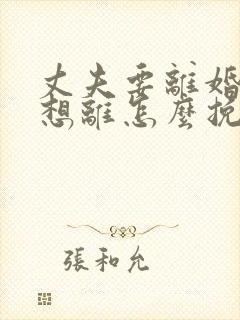 丈夫要離婚
想離怎麼挽
張和允